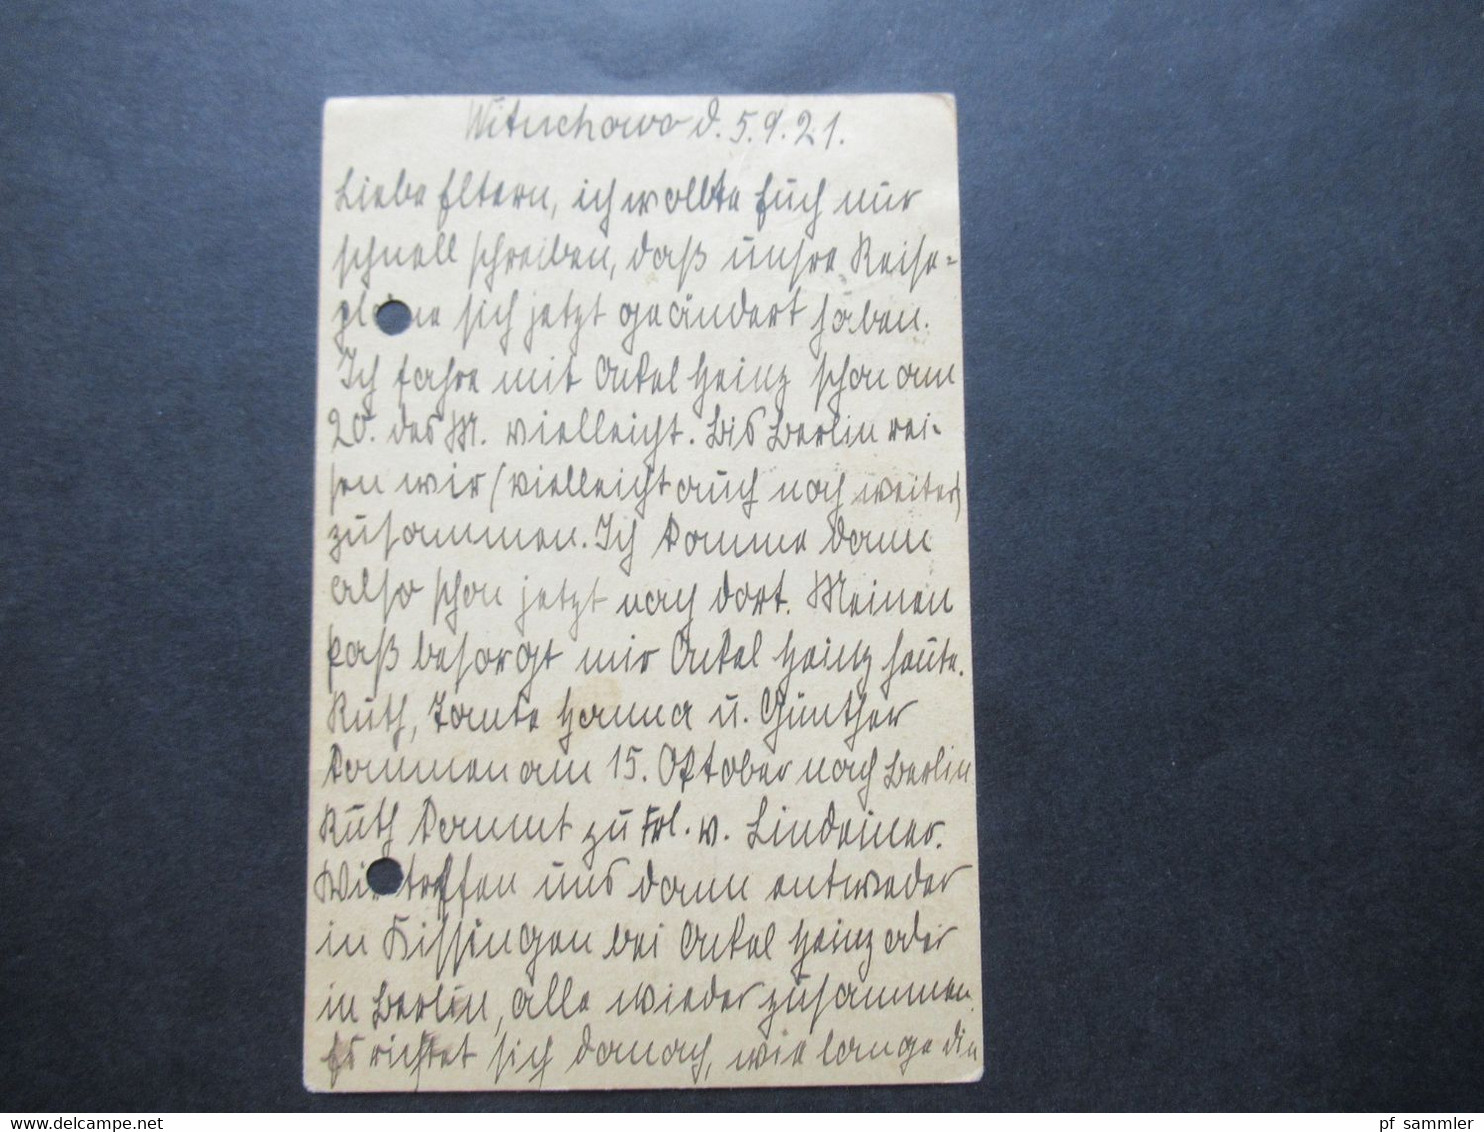 Wituchowo d. 5.9.21.
Liebe Eltern, ich wollte Euch nur
schnell schreiben, daß unsre Reise=
pläne sich jetzt geändert haben.
Ich fahre mit Onkel Heinz schon am
20. des M. vielleicht. Bis Berlin rei-
sen wir (vielleicht auch noch weiter)
zusammen. Ich komme dann
also schon jetzt nach dort. Meinen
Paß besorgt mir Onkel Heinz heute.
Ruth, Tante Hanna u. Günther
kommen am 15. Oktober nach Berlin
Ruth kommt zu Frl. v. Lindeiner.
Wir treffen uns dann entweder
in Kissingen bei Onkel Heinz oder
in Berlin, alle wieder zusammen.
Es richtet sich danach, wie lange die
pf sammler